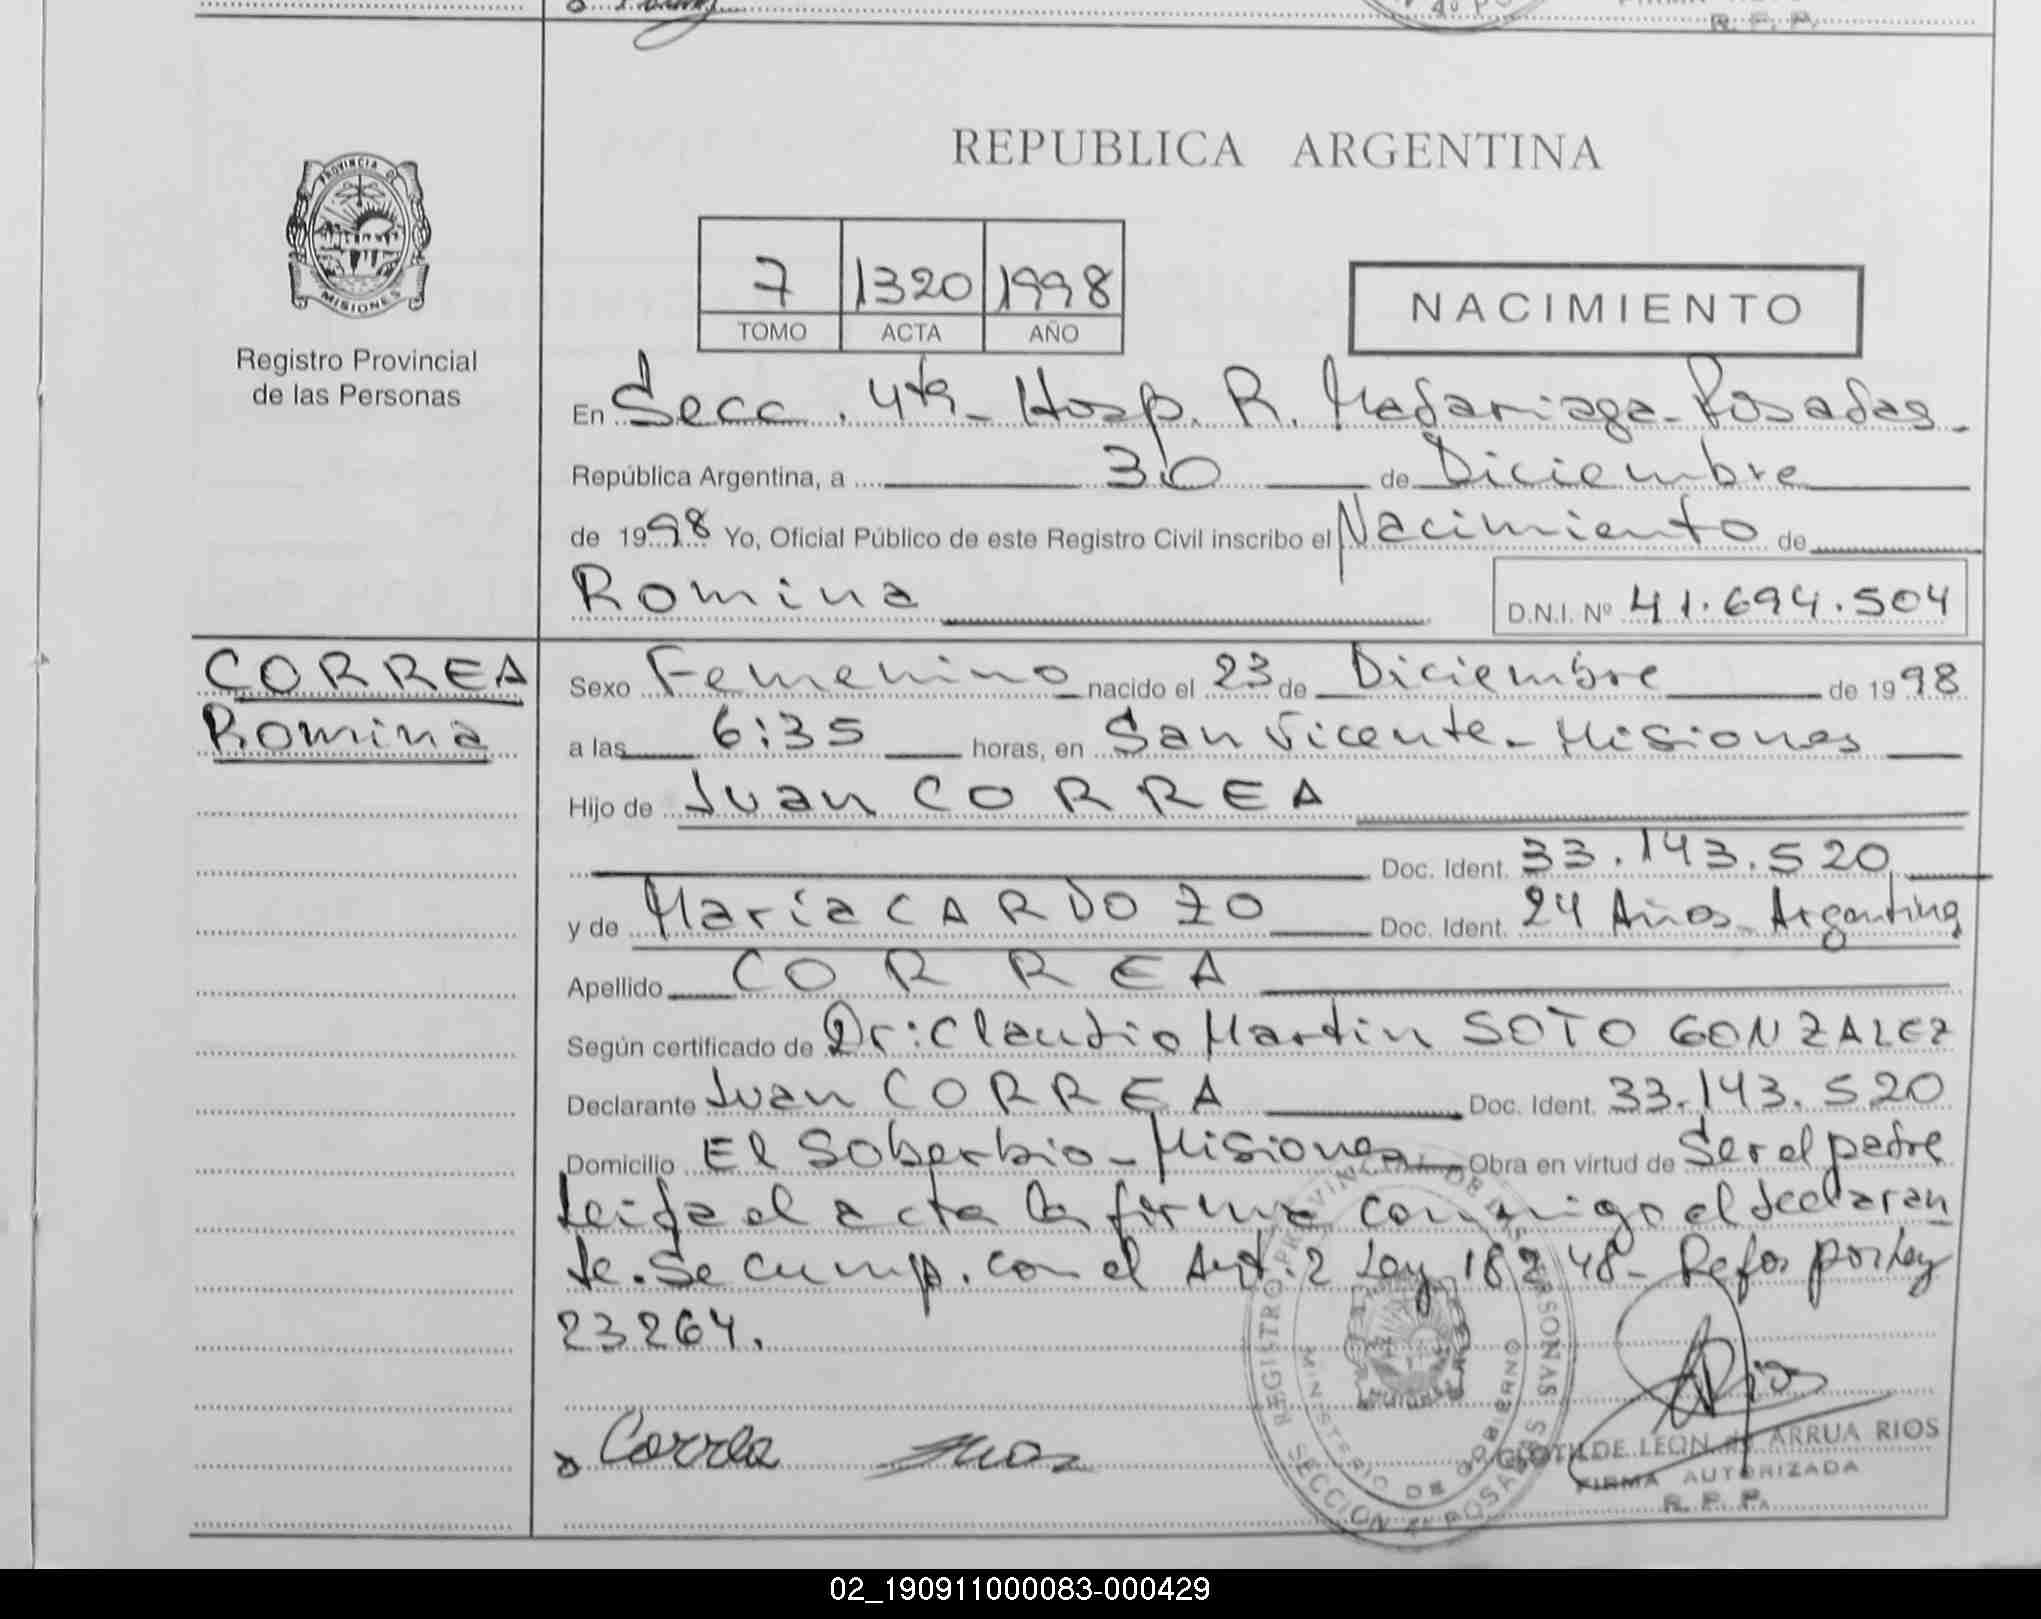 REPUBLICA ARGENTINA
PROVINCIA DE
MISIONES
Registro Provincial
de las Personas
7 1320 1998
TOMO ACTA AÑO
NACIMIENTO
En Secc. 4ta - Hosp. R. Madariaga - Posadas -
República Argentina, a 30 de Diciembre
de 1998 Yo, Oficial Público de este Registro Civil inscribo el Nacimiento de
Romina D.N.I. Nº 41.694.504
CORREA
Romina
Sexo Femenino nacido el 23 de Diciembre de 1998
a las 6:35 horas, en San Vicente - Misiones
Hijo de Juan CORREA
Doc. Ident. 33.143.520
y de Maria CARDOZO Doc. Ident. 24 Años - Argentina
Apellido CORREA
Según certificado de Dr: Claudio Martin SOTO GONZALEZ
Declarante Juan CORREA Doc. Ident. 33.143.520
Domicilio El Soberbio - Misiones Obra en virtud de Ser el padre
Leida el acta la firma conmigo el declaran
te. Se cump. con el Art. 2 Ley 18248 - Refor por Ley
23264.
Correa Juan
REGISTRO PROVINCIAL DE LAS PERSONAS
MINISTERIO DE GOBIERNO
SECCION 4ª POSADAS
CLOTILDE LEON de ARRUA RIOS
FIRMA AUTORIZADA
R. P. P.
02_190911000083-000429